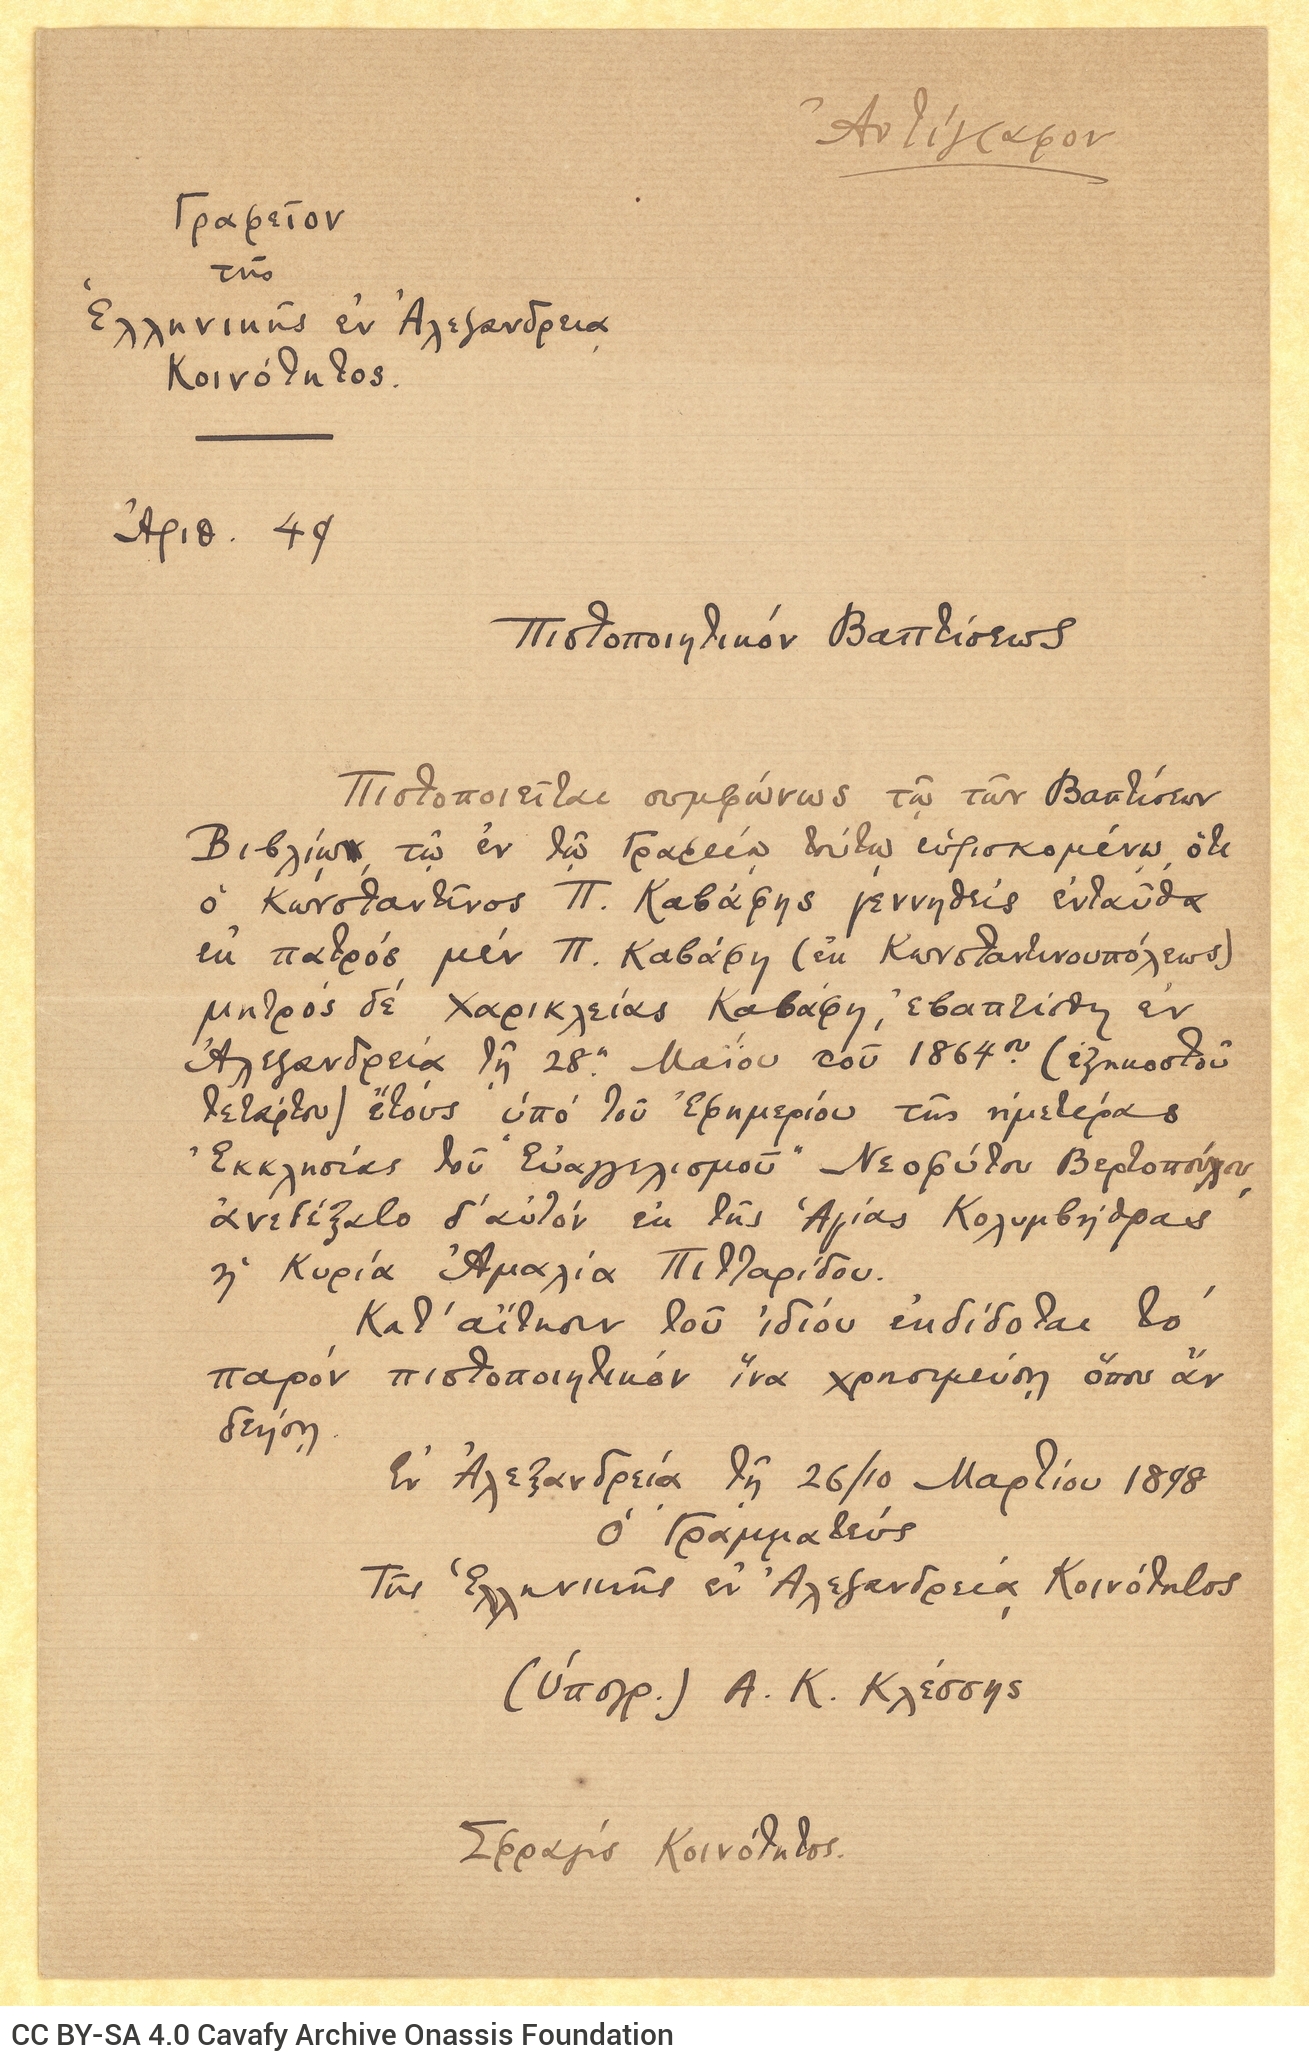 Ἀντίγραφον
Γραφεῖον
τῆς
Ἑλληνικῆς ἐν Ἀλεξανδρείᾳ
Κοινότητος.
Ἀριθ. 49
Πιστοποιητικόν Βαπτίσεως
Πιστοποιεῖται συμφώνως τῷ τῶν Βαπτίσεων
Βιβλίῳ, τῷ ἐν τῷ Γραφείῳ τούτῳ εὑρισκομένῳ, ὅτι
ὁ Κωνσταντῖνος Π. Καβάφης γεννηθείς ἐνταῦθα
ἐκ πατρός μέν Π. Καβάφη (ἐκ Κωνσταντινουπόλεως)
μητρός δέ Χαρικλείας Καβάφη, ἐβαπτίσθη ἐν
Ἀλεξανδρείᾳ τῇ 28ῃ Μαΐου τοῦ 1864ου (ἑξηκοστοῦ
τετάρτου) ἔτους ὑπό τοῦ Ἐφημερίου τῆς ἡμετέρας
Ἐκκλησίας τοῦ "Εὐαγγελισμοῦ" Νεοφύτου Βερτοπούλου,
ἀνεδέξατο δ' αὐτόν ἐκ τῆς Ἁγίας Κολυμβήθρας
ἡ Κυρία Ἀμαλία Πιτταρίδου.
Κατ' αἴτησιν τοῦ ἰδίου ἐκδίδοται τό
παρόν πιστοποιητικόν ἵνα χρησιμεύσῃ ὅπου ἄν
δεήσῃ.
Ἐν Ἀλεξανδρείᾳ τῇ 26/10 Μαρτίου 1898
Ὁ Γραμματεύς
Τῆς Ἑλληνικῆς ἐν Ἀλεξανδρείᾳ Κοινότητος
(Ὑπογρ.) Α. Κ. Κλέσσης
Σφραγίς Κοινότητος.
CC BY-SA 4.0 Cavafy Archive Onassis Foundation